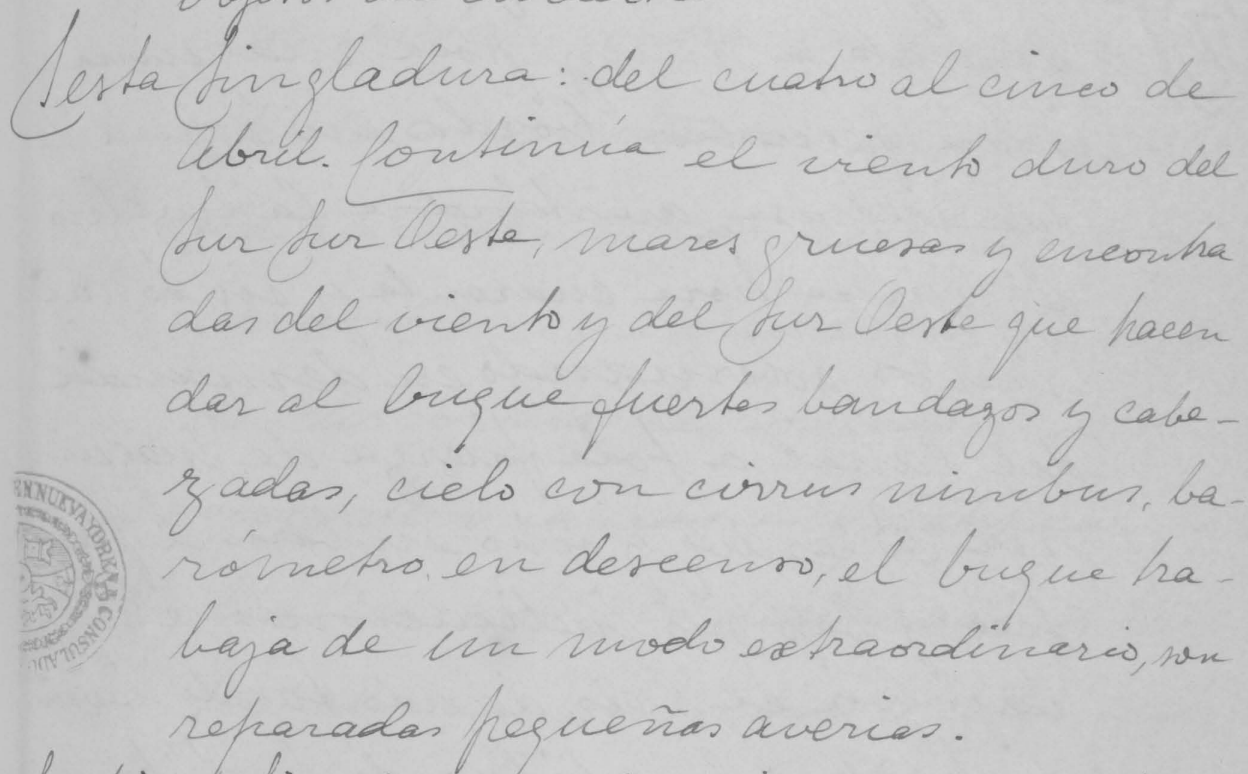 Sesta Singladura: del cuatro al cinco de
Abril. Continúa el viento duro del
Sur Sur Oeste, mares gruesas y encontra
das del viento y del Sur Oeste que hacen
dar al buque fuertes bandazos y cabe-
zadas, cielo con cirrus nimbus, ba-
rómetro en descenso, el buque tra-
baja de un modo extraordinario, son
reparadas pequeñas averias.
EN NUEVA YORK
CONSULADO